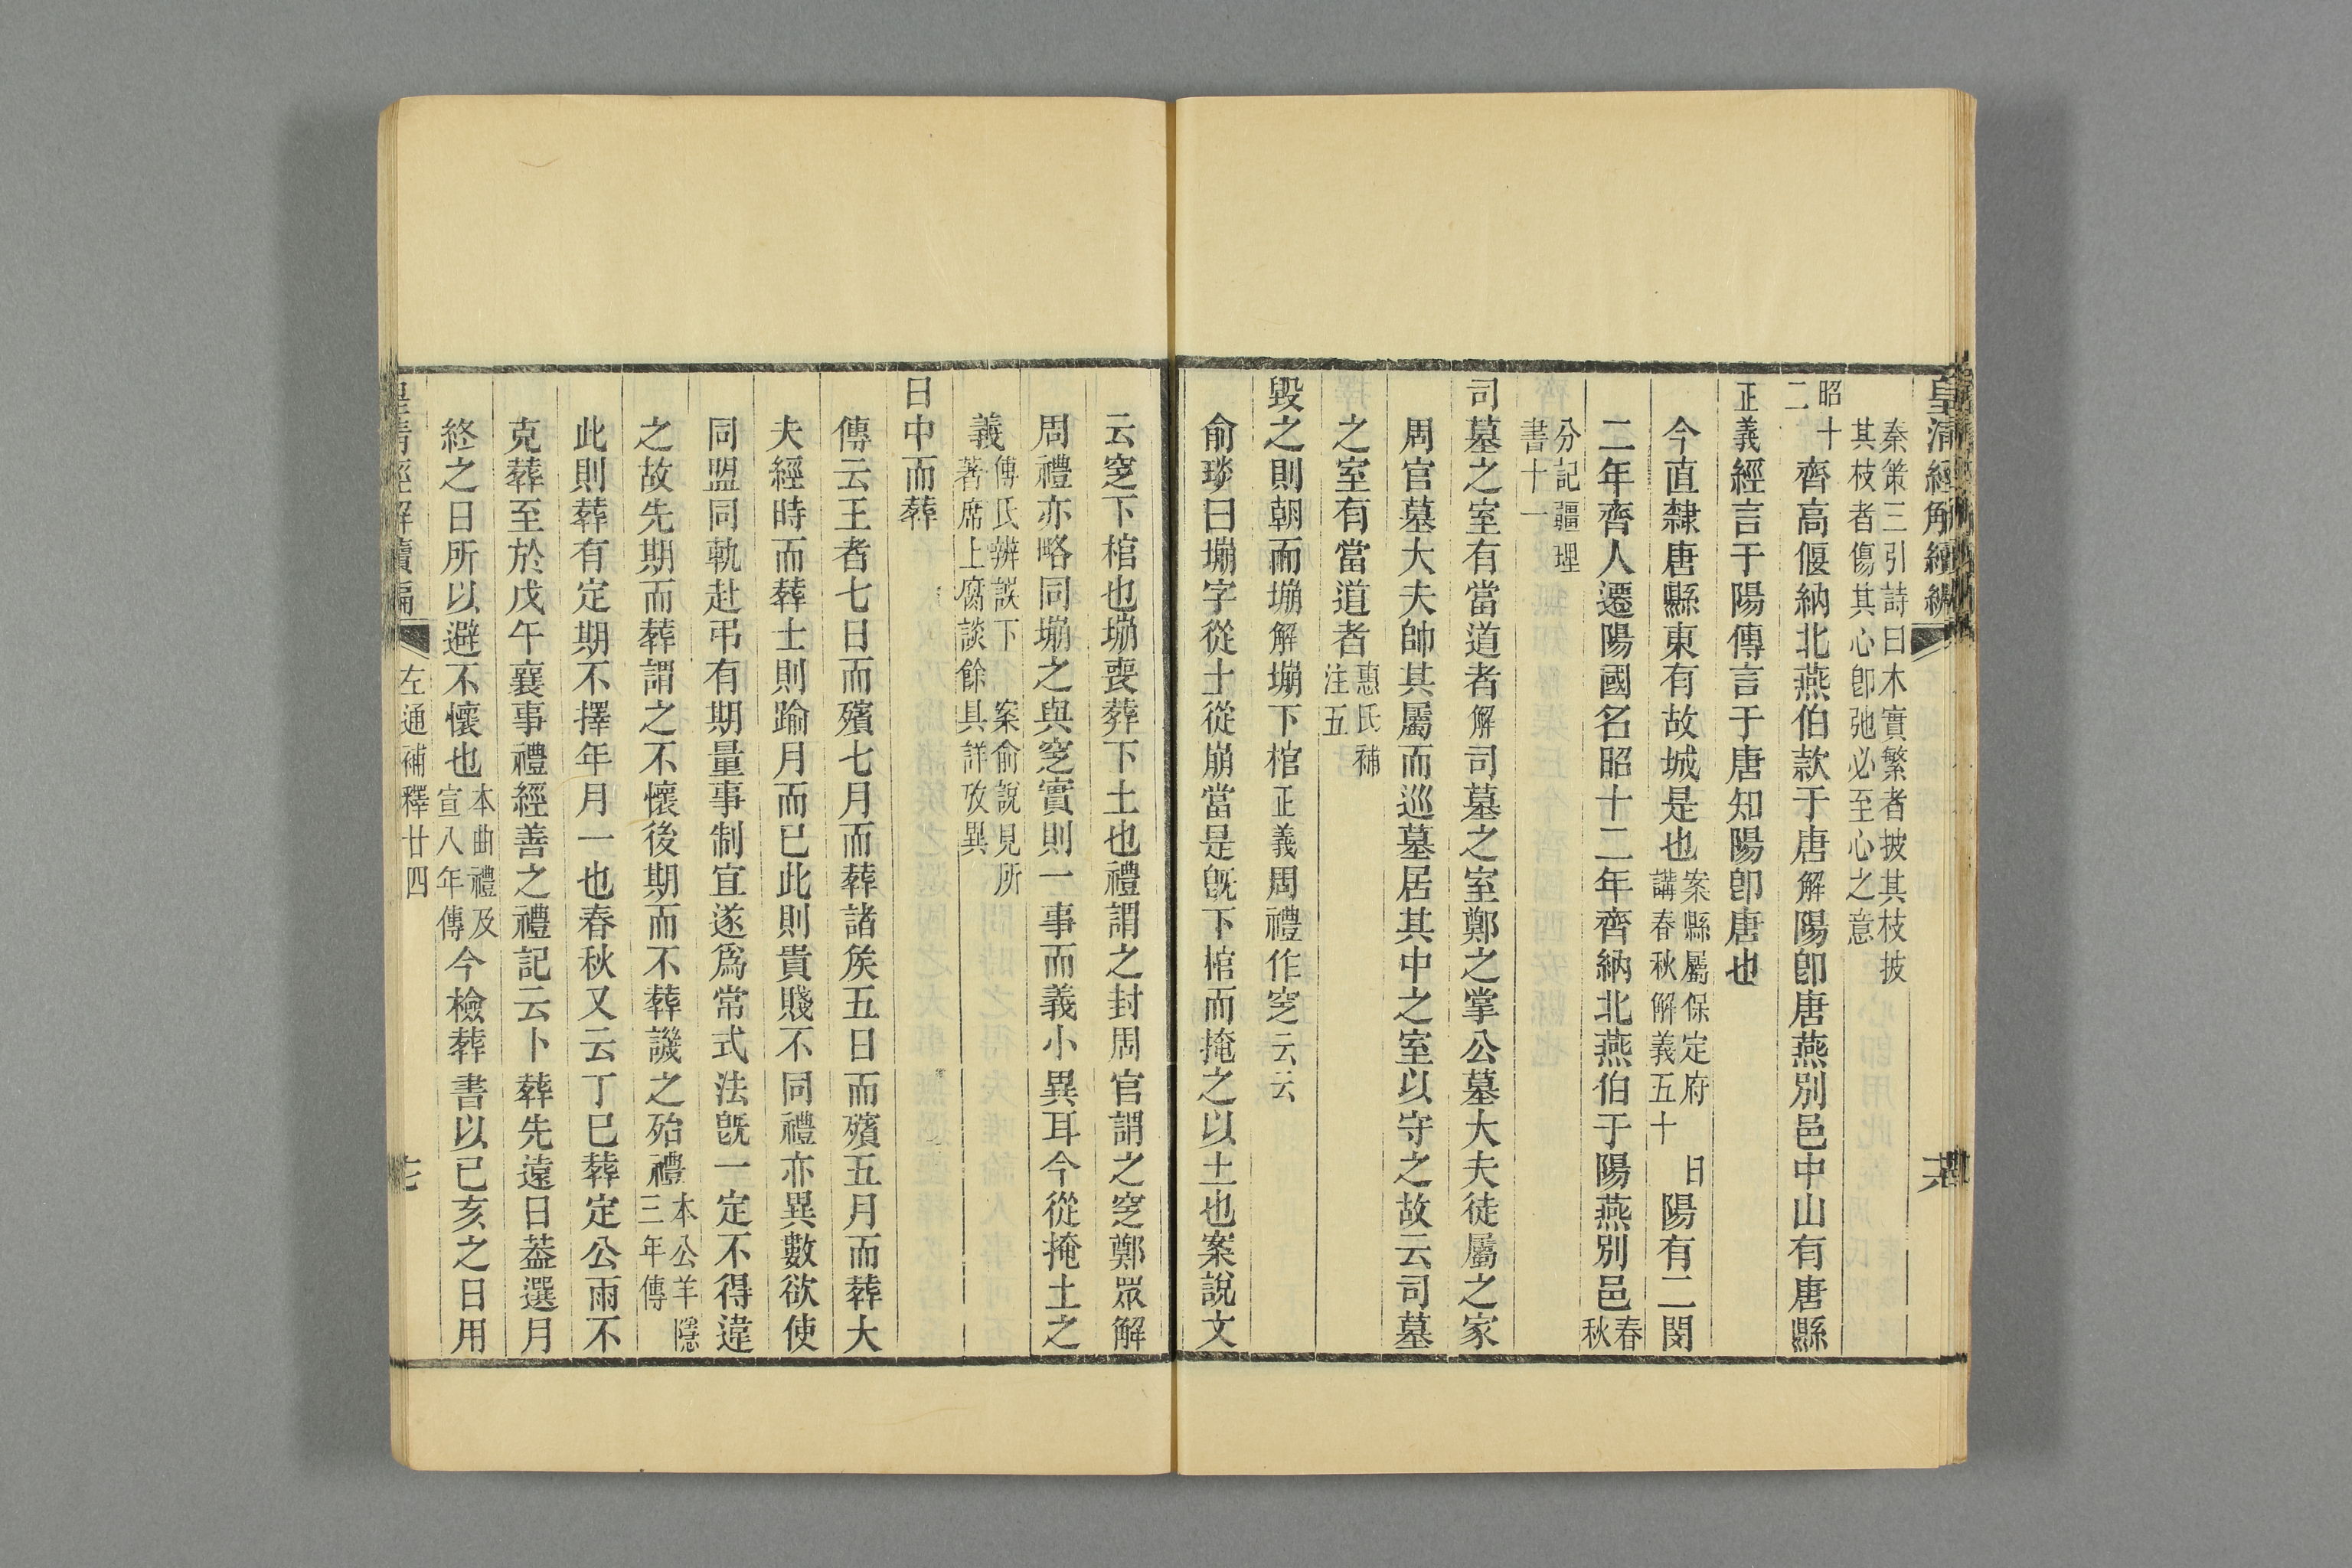 皇清經解續編
秦策三引詩曰木實繁者披其枝披
其枝者傷其心卽弛必至心之意
昭十二齊高偃納北燕伯款于唐解陽卽唐燕別邑中山有唐縣
正義經言于陽傳言于唐知陽卽唐也
今直隸唐縣東有故城是也案縣屬保定府 日講春秋解義五十陽有二閔
二年齊人遷陽國名昭十二年齊納北燕伯于陽燕別邑春秋
分記疆理
書十一
司墓之室有當道者解司墓之室鄭之掌公墓大夫徒屬之家
周官墓大夫帥其屬而巡墓居其中之室以守之故云司墓
之室有當道者惠氏補注五
毀之則朝而塴解塴下棺正義周禮作窆云云
俞琰曰塴字從土從崩當是旣下棺而掩之以土也案說文
云窆下棺也塴喪葬下土也禮謂之封周官謂之窆鄭眾解
周禮亦略同塴之與窆實則一事而義小異耳今從掩土之
義傅氏辨誤下 案俞說見所著席上腐談餘具詳攷異
日中而葬
傳云王者七日而殯七月而葬諸矦五日而殯五月而葬大
夫經時而葬士則踰月而已此則貴賤不同禮亦異數欲使
同盟同軌赴弔有期量事制宜遂爲常式法旣一定不得違
之故先期而葬謂之不懷後期而不葬譏之殆禮本公羊隱三年傳
此則葬有定期不擇年月一也春秋又云丁巳葬定公雨不
克葬至於戊午襄事禮經善之禮記云卜葬先遠日葢選月
終之日所以避不懷也本曲禮及宣八年傳今檢葬書以已亥之日用
皇清經解續編 左通補釋廿四